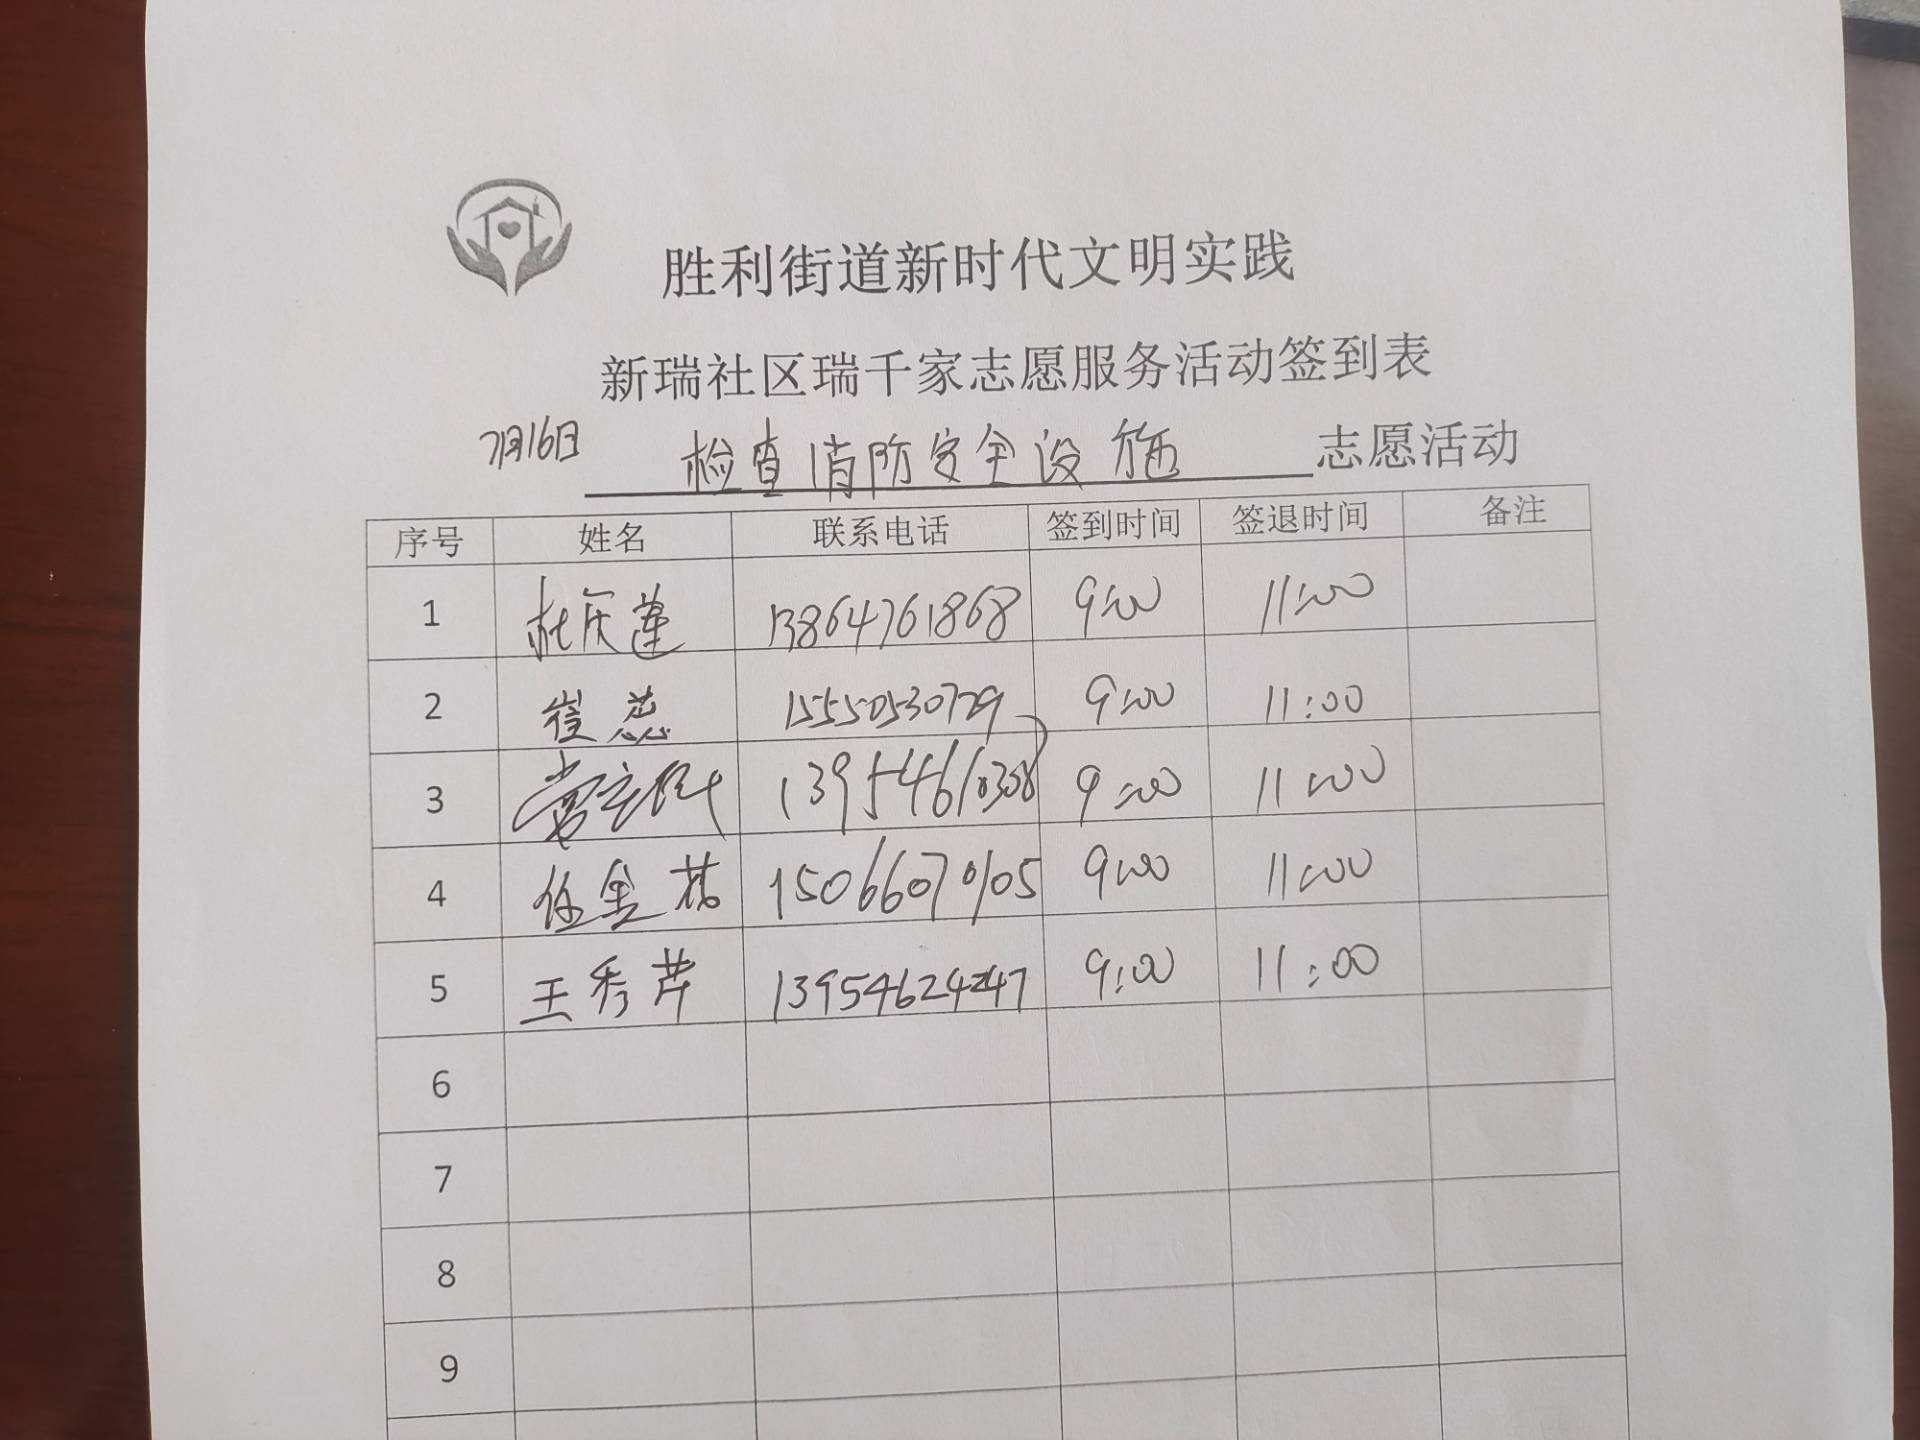 胜利街道新时代文明实践
新瑞社区瑞千家志愿服务活动签到表
7月16日 检查消防安全设施 志愿活动
序号 姓名 联系电话 签到时间 签退时间 备注
1 杜庆莲 13864761868 9:00 11:00
2 崔蕊 15550530729 9:00 11:00
3 13954610308 9:00 11:00
4 任金花 15066070105 9:00 11:00
5 王秀芹 13954624247 9:00 11:00
6
7
8
9